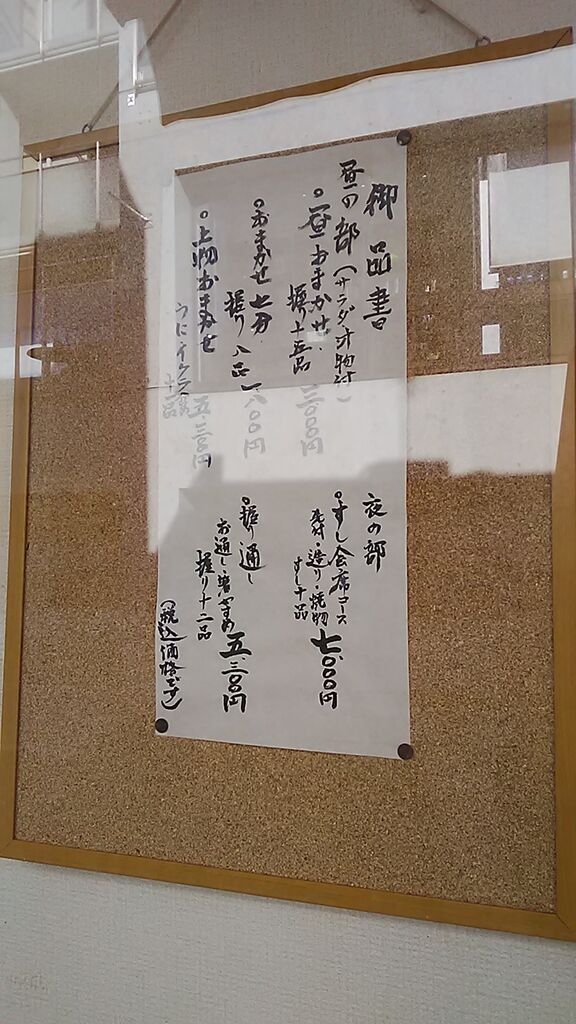 御品書
昼の部(サラダ才物付)
○昼おまかせ
握り十五品
三、〇〇〇円
○おまかせ七分
握り八品
一、八〇〇円
○上物おまかせ
うにイクラ入
十一品
五、三〇〇円
夜の部
○すし会席コース
先付・造り・焼物
すし十品
七、〇〇〇円
○握り通し
お通し・
握り十二品
五、三〇〇円
(税込価格です)